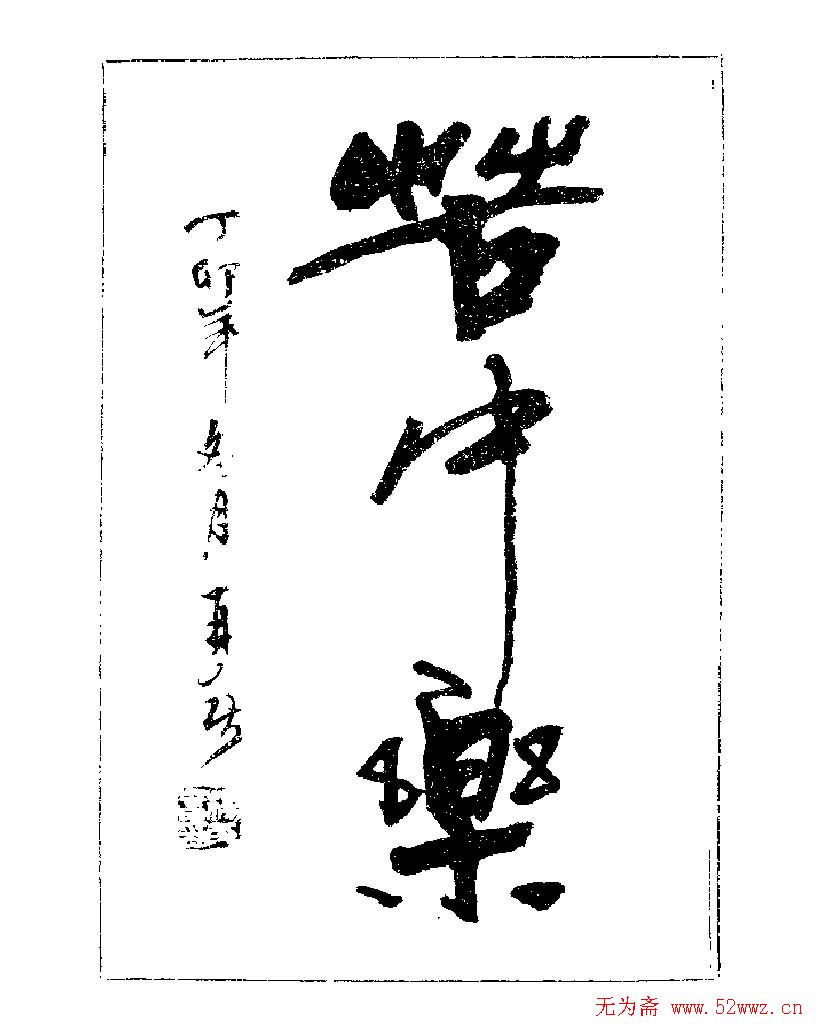 苦中樂
丁卯年冬月
无为斋 www.52wwz.cn